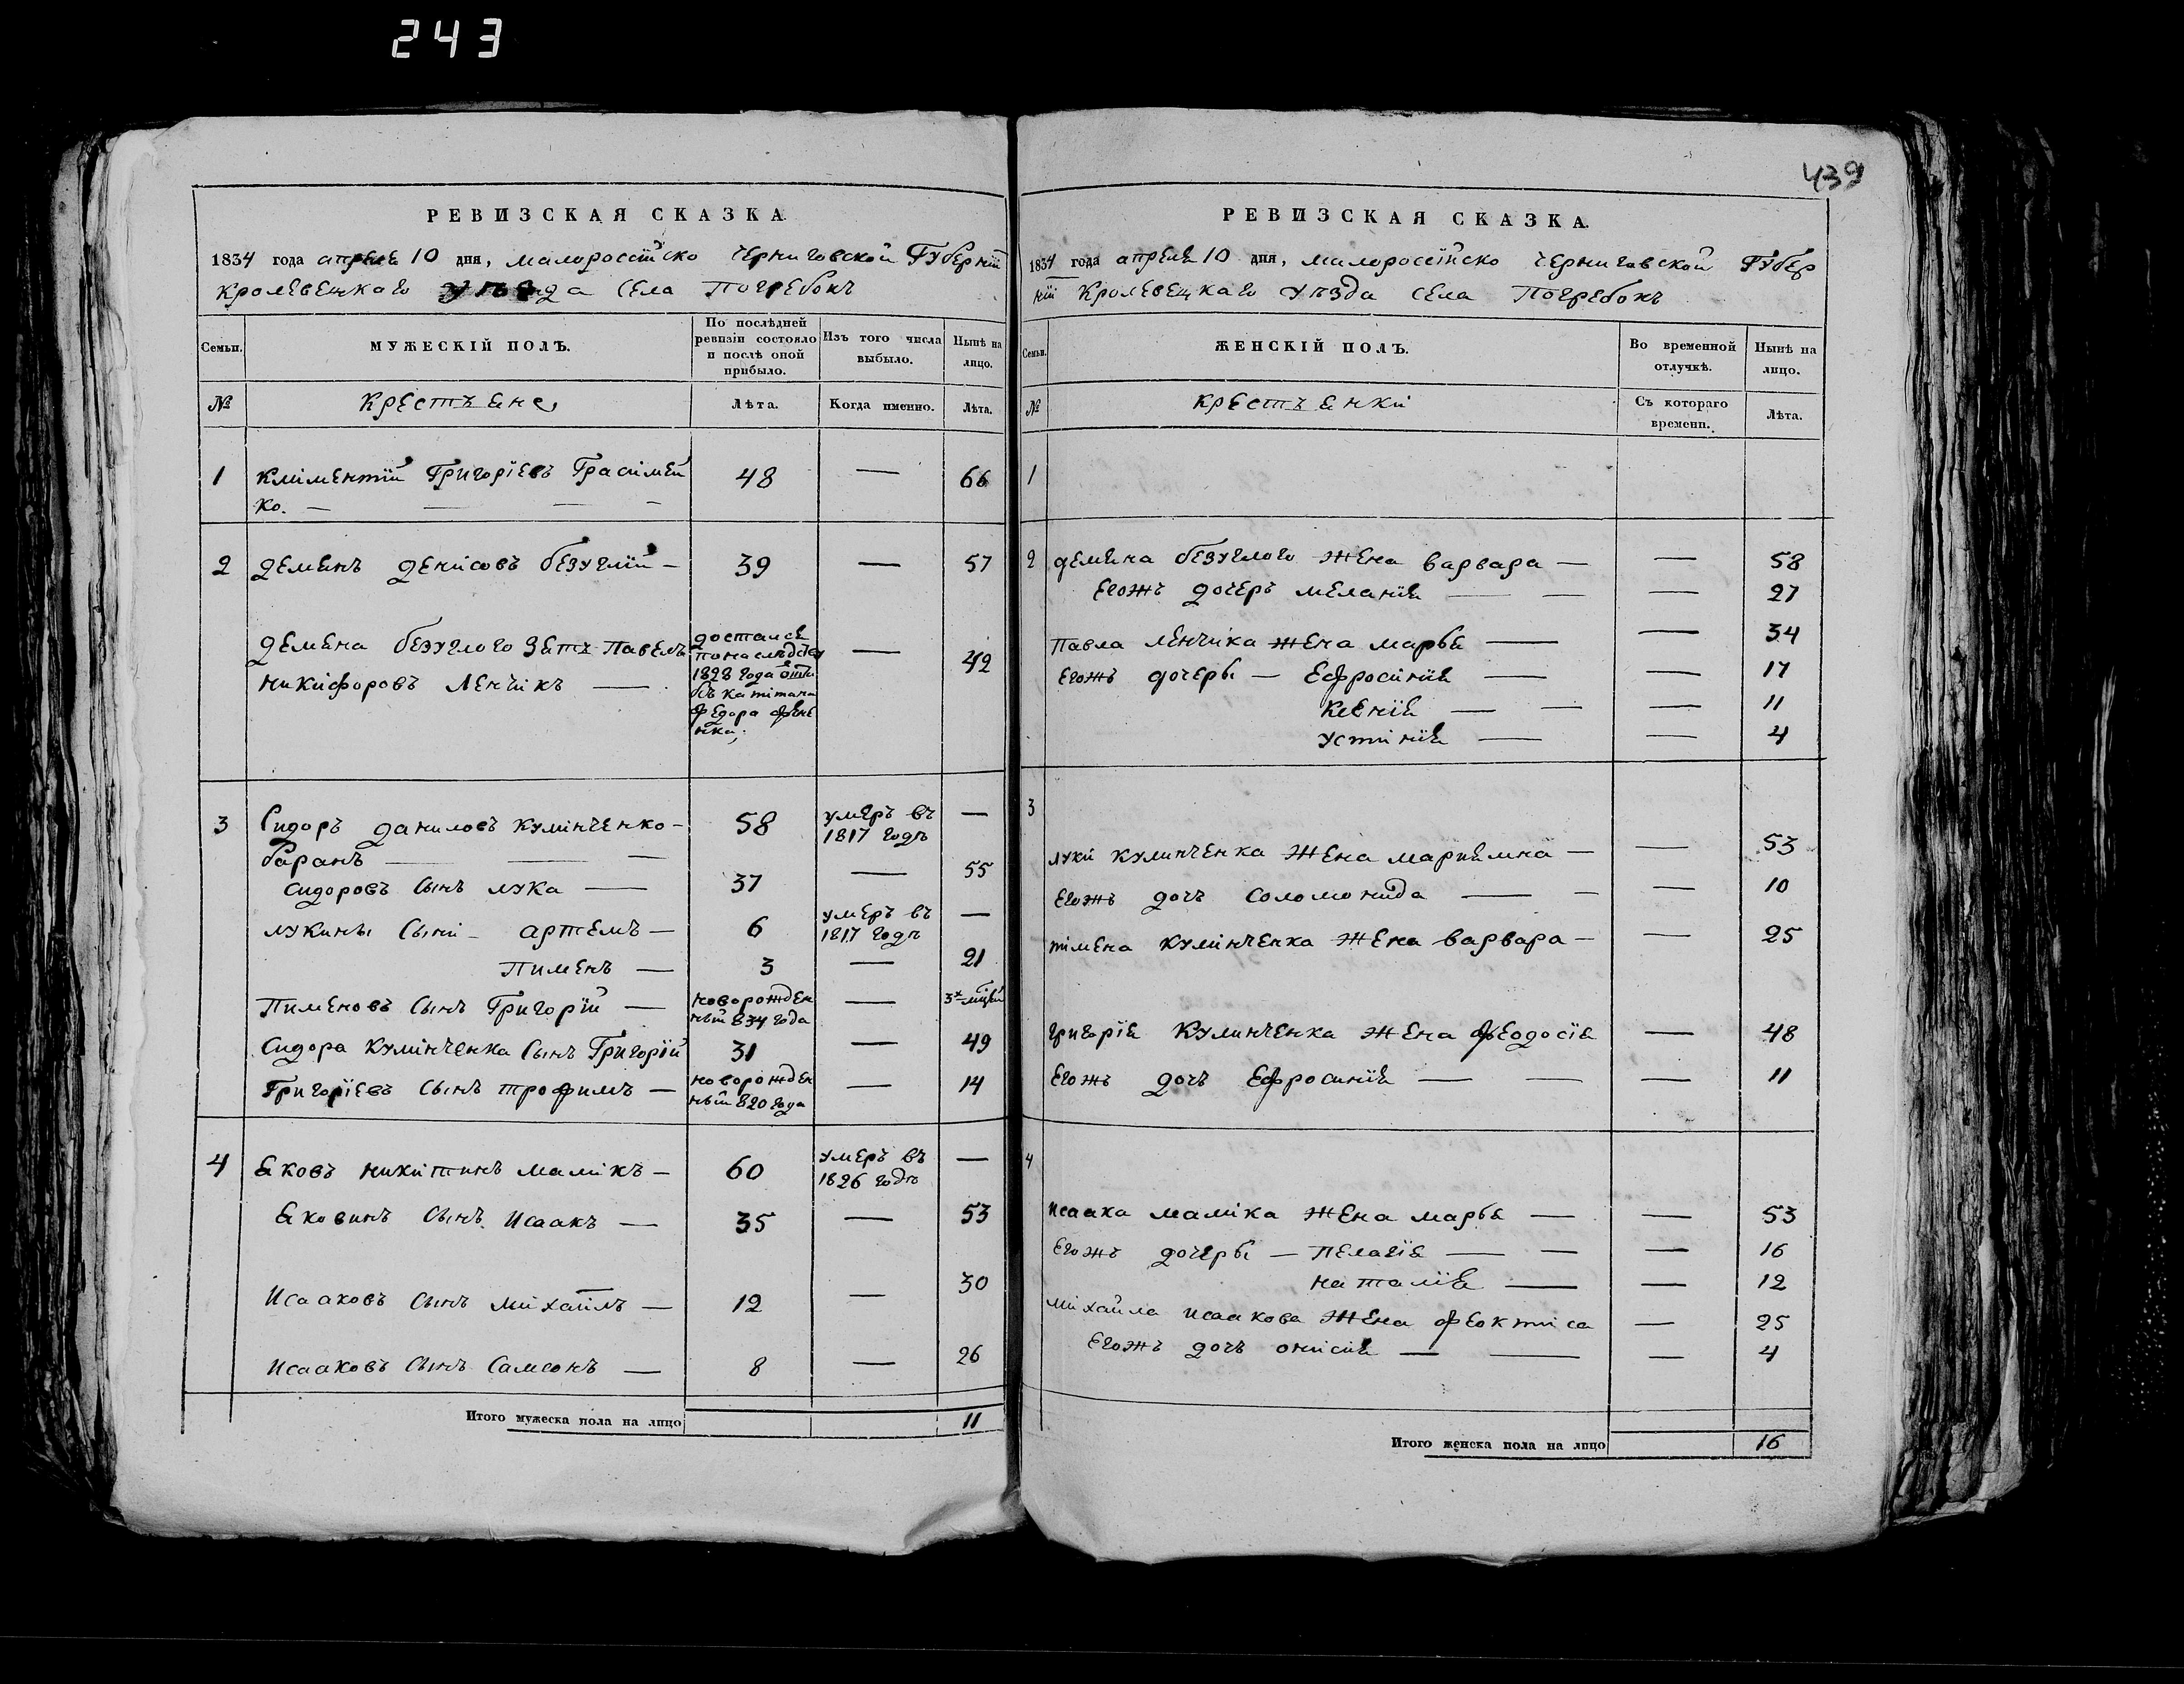 243
439
РЕВИЗСКАЯ СКАЗКА.
1834 года апреля 10 дня, малоросїйско Черниговской Губернїи
Кролевецкаго уѣзда села Погребокъ
Семьи.
МУЖЕСКІЙ ПОЛЪ.
По послѣдней ревизіи состояло и послѣ оной прибыло.
Изъ того числа выбыло.
Нынѣ на лицо.
№
Крестъяне
Лѣта.
Когда именно.
Лѣта.
1 Кліментїй Григорїевъ Грасімен 48 — 66
ко. — — — —
2 Демянъ Денісовъ безуглїй — 39 — 57
Демяна безуглого зять Павелъ — 42
Никіфоровъ Ленчікъ —
достался
по наследству
1828 года
Федора
3 Сидоръ Даниловъ Кулінченко — 58 умеръ въ —
1817 годѣ
баранъ — — —
Сидоровъ сынъ лука — 37 — 55
лукины сыни — артемъ — 6 умеръ въ —
1817 годѣ
Пименъ — 3 — 21
Пименовъ сынъ Григорїй — новорожден — 3х мцей
ный 834 года
Сидора Кулінченка сынъ Григорїй 31 — 49
Григорїевъ сынъ трофимъ — новорожден — 14
ный 820 года
4 Яковъ никитинъ маликъ — 60 умеръ въ —
1826 годѣ
Яковинъ сынъ Исаакъ — 35 — 53
Исааковъ сынъ міхаилъ — 12 — 30
Исааковъ сынъ Самсонъ — 8 — 26
Итого мужеска пола на лицо 11
РЕВИЗСКАЯ СКАЗКА.
1834 года апреля 10 дня, малоросїйско Черниговской Губер
нїи Кролевецкаго уѣзда села Погребокъ
Семьи.
ЖЕНСКІЙ ПОЛЪ.
Во временной отлучкѣ.
Нынѣ на лицо.
№
Крестъянки
Съ котораго времени.
Лѣта.
1
2 Демяна безуглого жена варвара — — 58
Егожъ дочеръ меланїя — — — 27
Павла ленчика жена марья — — 34
Егожъ дочеры — Ефросинїя — — 17
Ксенїя — — — 11
устинїя — — 4
3
луки кулинченка жена мариямна — — 53
Егожъ дочъ соломонида — — — 10
пімена кулінченка жена варвара — — 25
григорїя Кулинченка жена феодосїя — 48
Егожъ дочъ Ефросинїя — — — 11
4
Исаака маліка жена марья — — 53
Егожъ дочеры — пелагїя — — — 16
наталїя — — 12
Міхаила исаакова жена феоктіса — 25
Егожъ дочъ онісия — — — 4
Итого женска пола на лицо 16